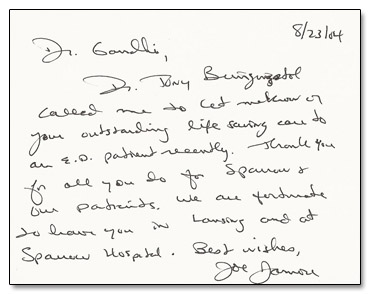 8/23/04
Dr. Gandhi,
Dr. Tony
called me to let me know of
your outstanding life saving care to
an E.D. patient recently. Thank you
for all you do for Sparrow &
our patients. We are fortunate
to have you in Lansing and at
Sparrow Hospital. Best wishes,
Joe